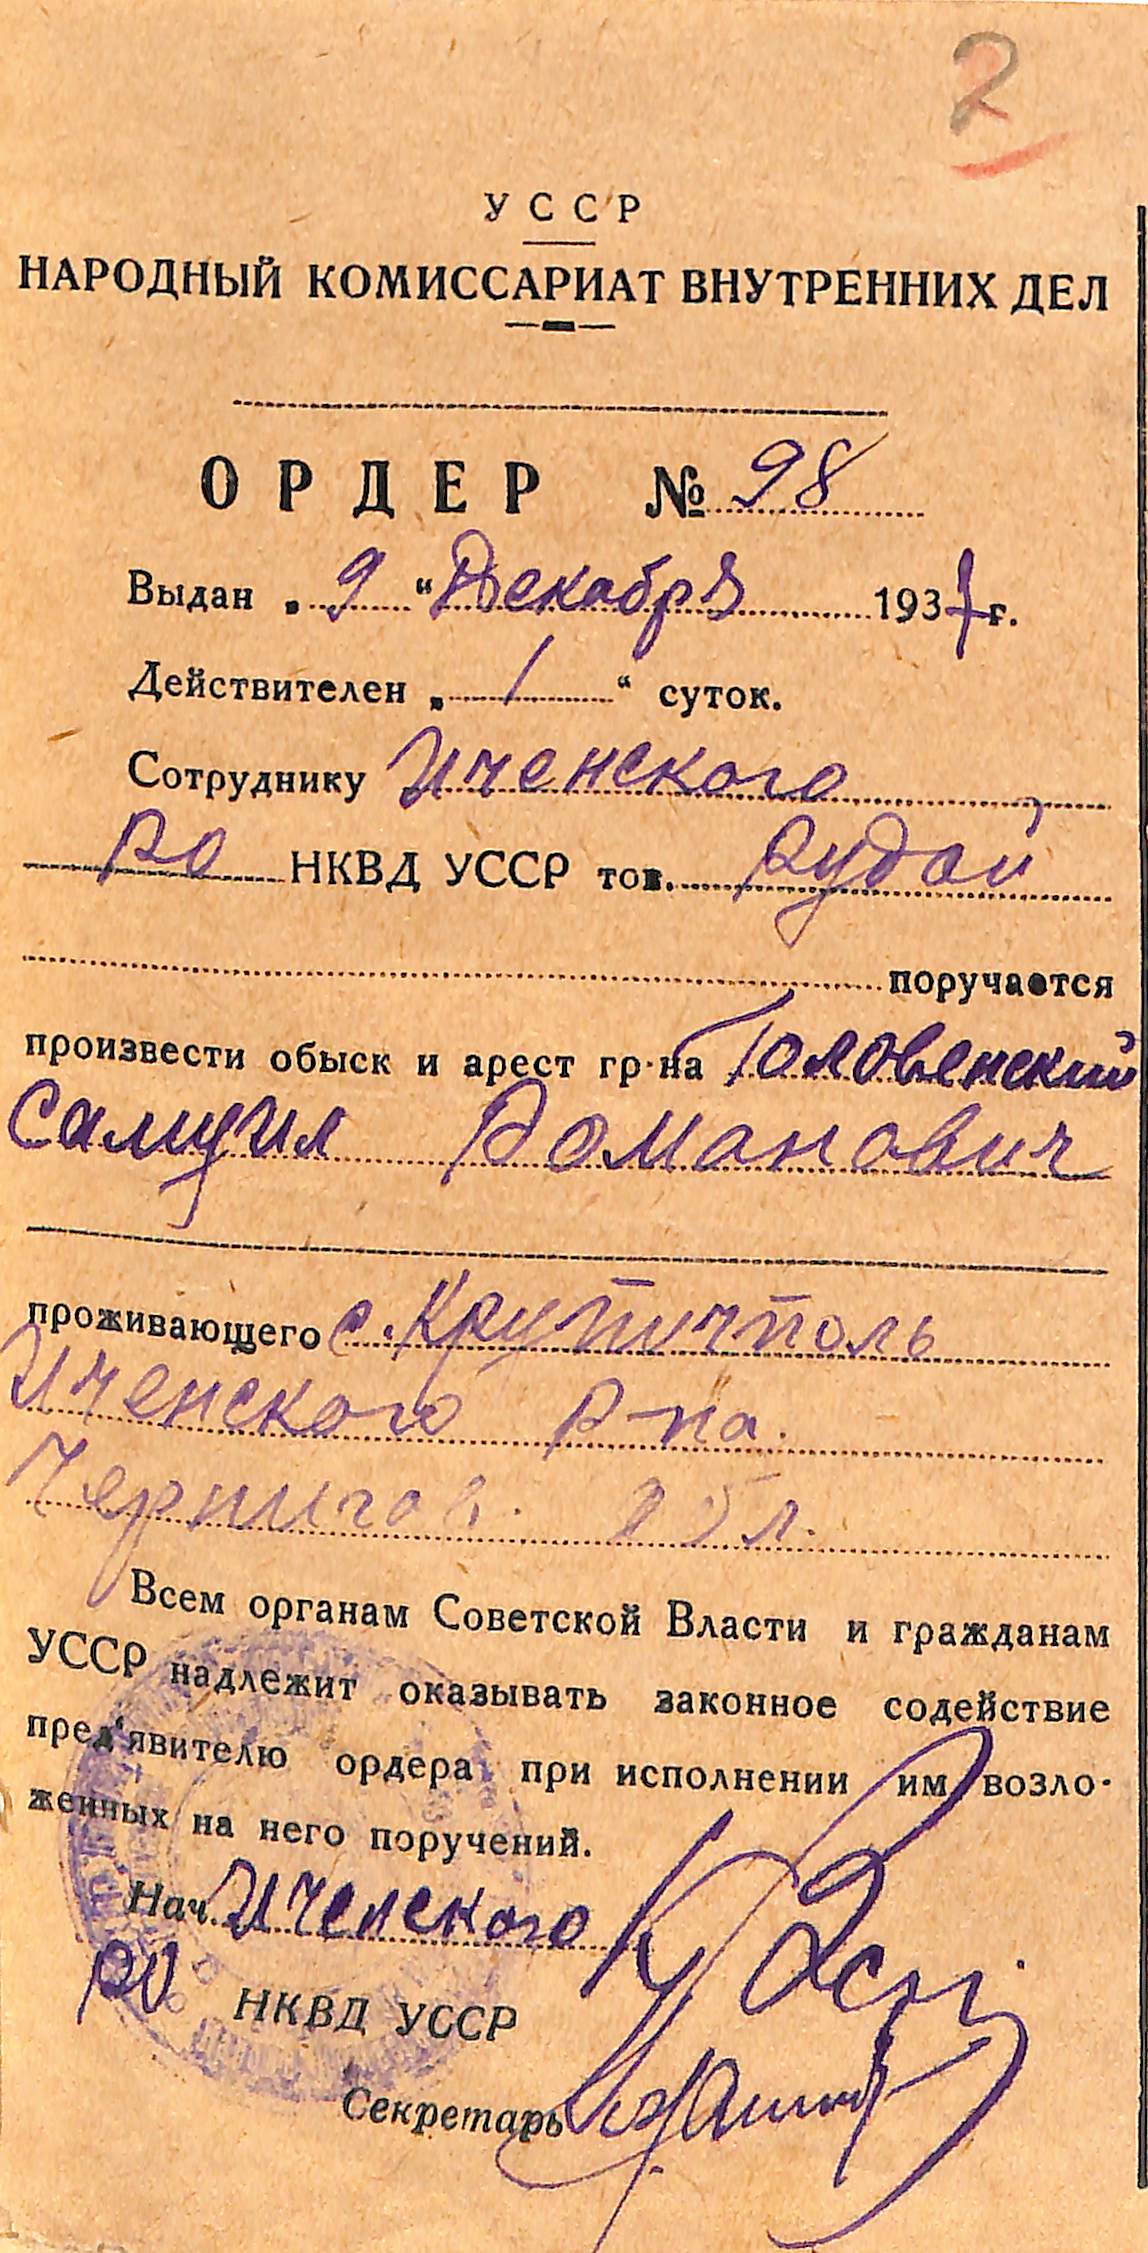 2
УССР
НАРОДНЫЙ КОМИССАРИАТ ВНУТРЕННИХ ДЕЛ
ОРДЕР № 98
Выдан „ 9 “ Декабря 1937 г.
Действителен „ 1 “ суток.
Сотруднику Иченского
РО НКВД УССР тов. Рудой
поручается
произвести обыск и арест гр-на Головенский
Самуил Романович
проживающего с. Крупичполь
Иченского р-на.
Чернигов. обл.
Всем органам Советской Власти и гражданам
УССР надлежит оказывать законное содействие
пред'явителю ордера при исполнении им возло-
женных на него поручений.
Нач. Иченского
РО НКВД УССР
Секретарь